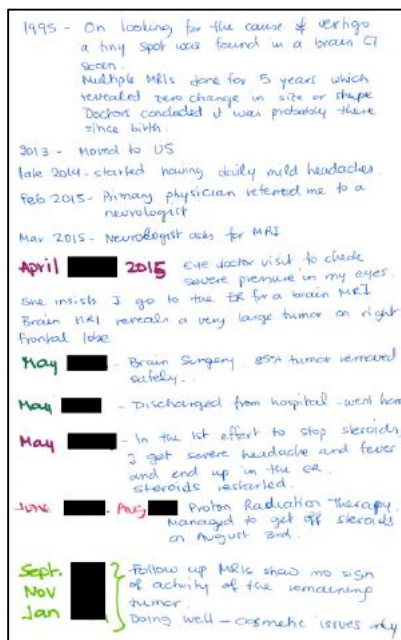 1995 - On looking for the cause of vertigo
a tiny spot was found in a brain CT
scan.
Multiple MRIs done for 5 years which
revealed zero change in size or shape
Doctors concluded it was probably there
since birth.
2013 - Moved to US
late 2014 - started having daily mild headaches.
Feb 2015 - Primary physician referred me to a
neurologist
Mar 2015 - Neurologist asks for MRI
April 2015 Eye doctor visit to check
severe pressure in my eyes.
She insists I go to the ER for a brain MRI
Brain MRI reveals a very large tumor on right
frontal lobe
May - Brain Surgery 85% tumor removed
safely..
May - Discharged from hospital - went hom
May - In the 1st effort to stop steroids,
I get severe headache and fever
and end up in the ER.
steroids restarted.
June - Aug Proton Radiation Therapy.
Managed to get off steroids
on August 3rd.
Sept. - Follow up MRIs show no sign
Nov of activity of the remaining
Jan tumor.
Doing well - cosmetic issues only